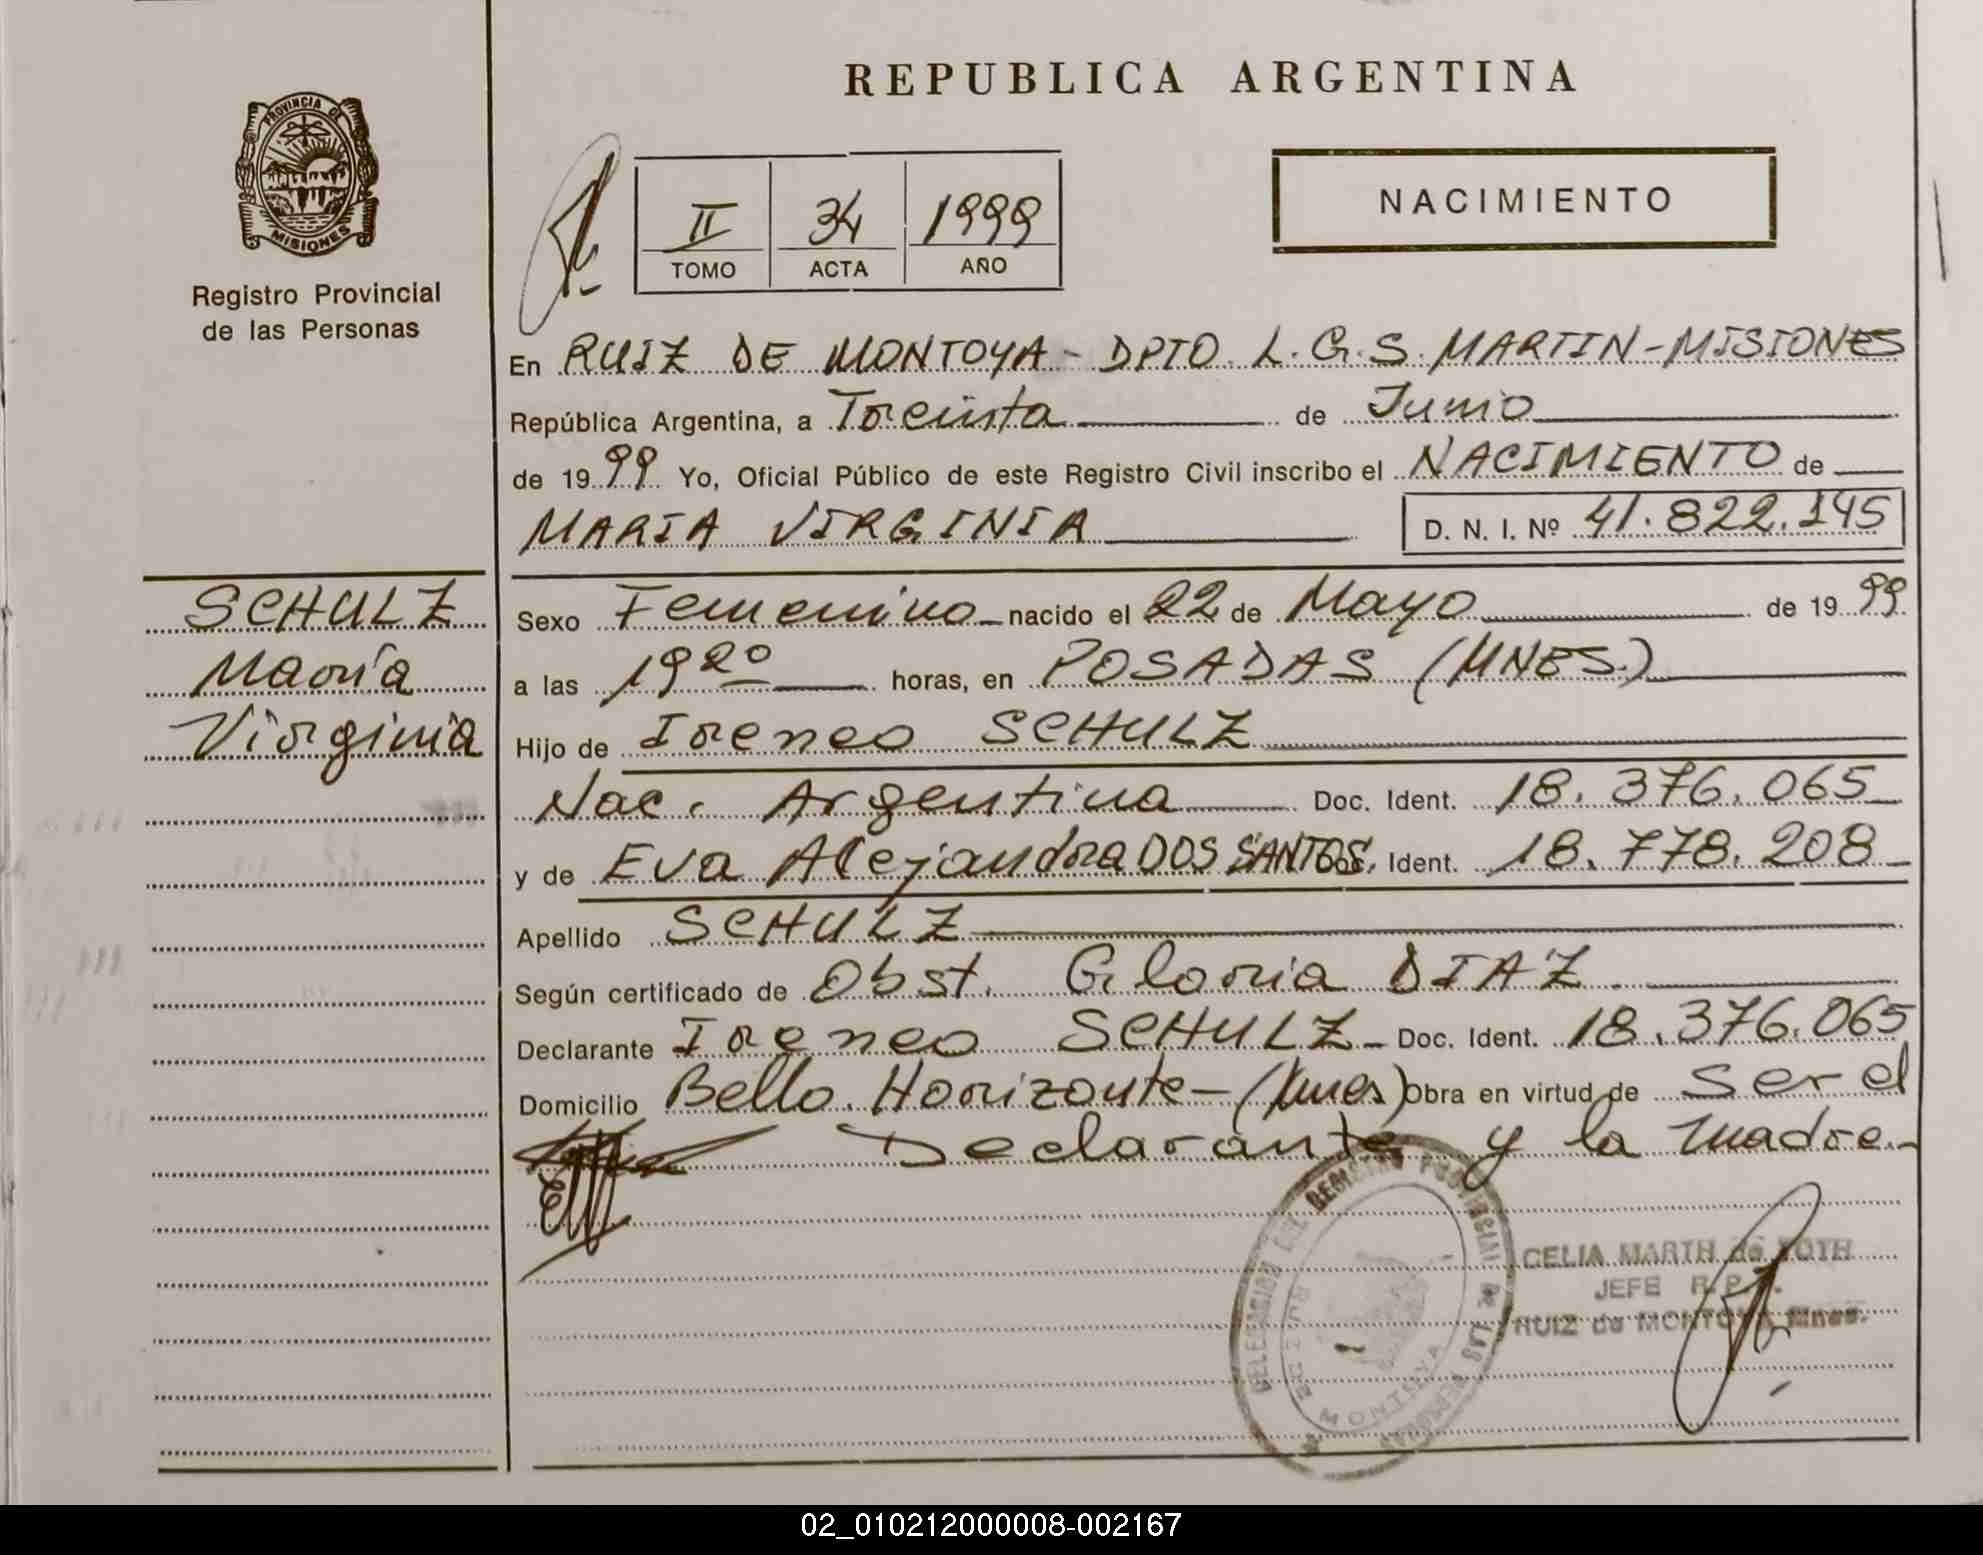 REPUBLICA ARGENTINA
PROVINCIA DE
MISIONES
Registro Provincial
de las Personas
II 34 1999
TOMO ACTA AÑO
NACIMIENTO
En RUIZ DE MONTOYA - DPTO. L. G. S. MARTIN - MISIONES
República Argentina, a Treinta de Junio
de 1999 Yo, Oficial Público de este Registro Civil inscribo el NACIMIENTO de
MARIA VIRGINIA D. N. I. Nº 41.822.145
SCHULZ
María
Virginia
Sexo Femenino nacido el 22 de Mayo de 1999
a las 19 20 horas, en POSADAS (MNES.)
Hijo de Ireneo SCHULZ
Nac. Argentina Doc. Ident. 18.376.065
y de Eva Alejandra DOS SANTOS Doc. Ident. 18.778.208
Apellido SCHULZ
Según certificado de Obst. Gloria DIAZ
Declarante Ireneo SCHULZ Doc. Ident. 18.376.065
Domicilio Bello Horizonte - (Mnes) Obra en virtud de ser el
Declarante y la madre.
DELEGACION DEL REGISTRO PROVINCIAL DE LAS PERSONAS
RUIZ DE MONTOYA
CELIA MARTH de
JEFE R.P.
RUIZ de MONTOYA Mnes.
02_010212000008-002167